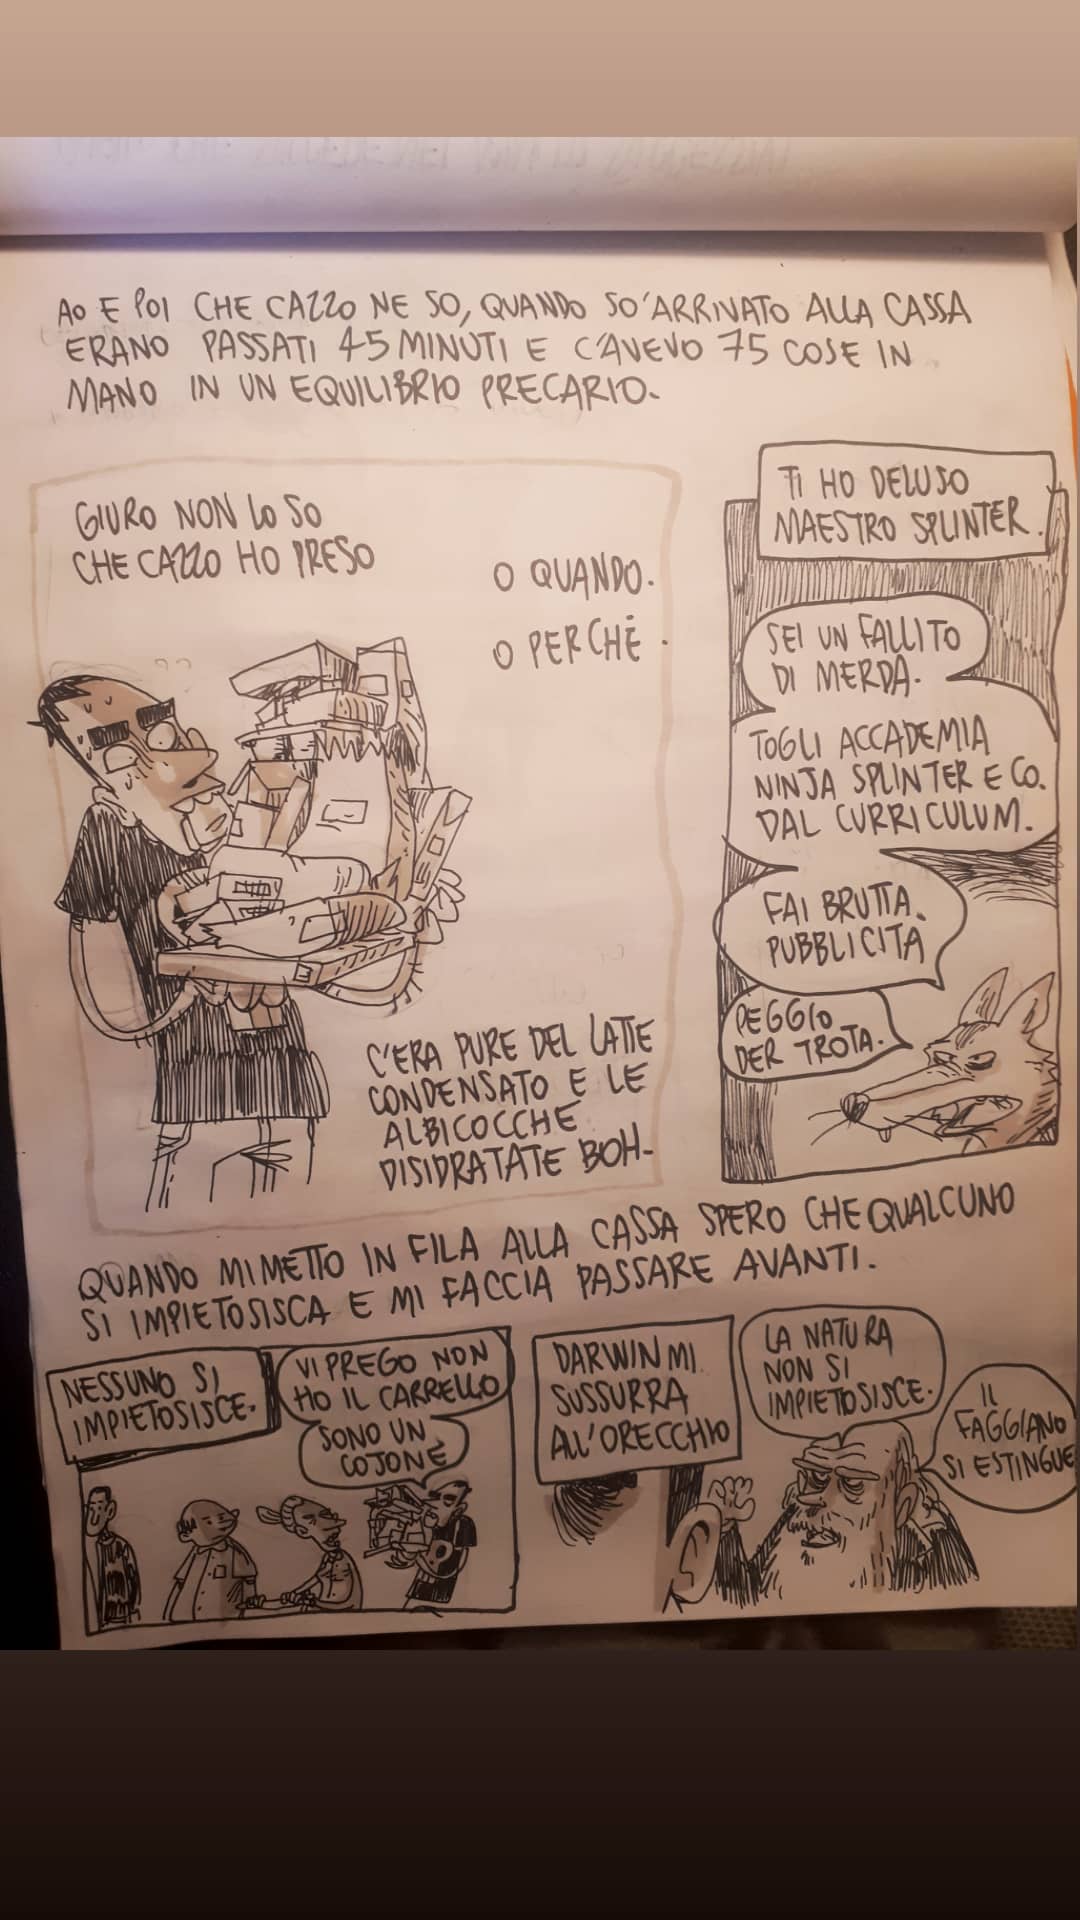 AO E POI CHE CAZZO NE SO, QUANDO SO' ARRIVATO ALLA CASSA
ERANO PASSATI 45 MINUTI E C'AVEVO 75 COSE IN
MANO IN UN EQUILIBRIO PRECARIO.
GIURO NON LO SO
CHE CAZZO HO PRESO
O QUANDO.
O PERCHÈ.
C'ERA PURE DEL LATTE
CONDENSATO E LE
ALBICOCCHE
DISIDRATATE BOH-
TI HO DELUSO
MAESTRO SPLINTER.
SEI UN FALLITO
DI MERDA.
TOGLI ACCADEMIA
NINJA SPLINTER E CO.
DAL CURRICULUM.
FAI BRUTTA
PUBBLICITÀ
PEGGIO
DER TROTA.
QUANDO MI METTO IN FILA ALLA CASSA SPERO CHE QUALCUNO
SI IMPIETOSISCA E MI FACCIA PASSARE AVANTI.
NESSUNO SI
IMPIETOSISCE.
VI PREGO NON
HO IL CARRELLO
SONO UN
COJONE
DARWIN MI
SUSSURRA
ALL'ORECCHIO
LA NATURA
NON SI
IMPIETOSISCE.
IL
FAGGIANO
SI ESTINGUE